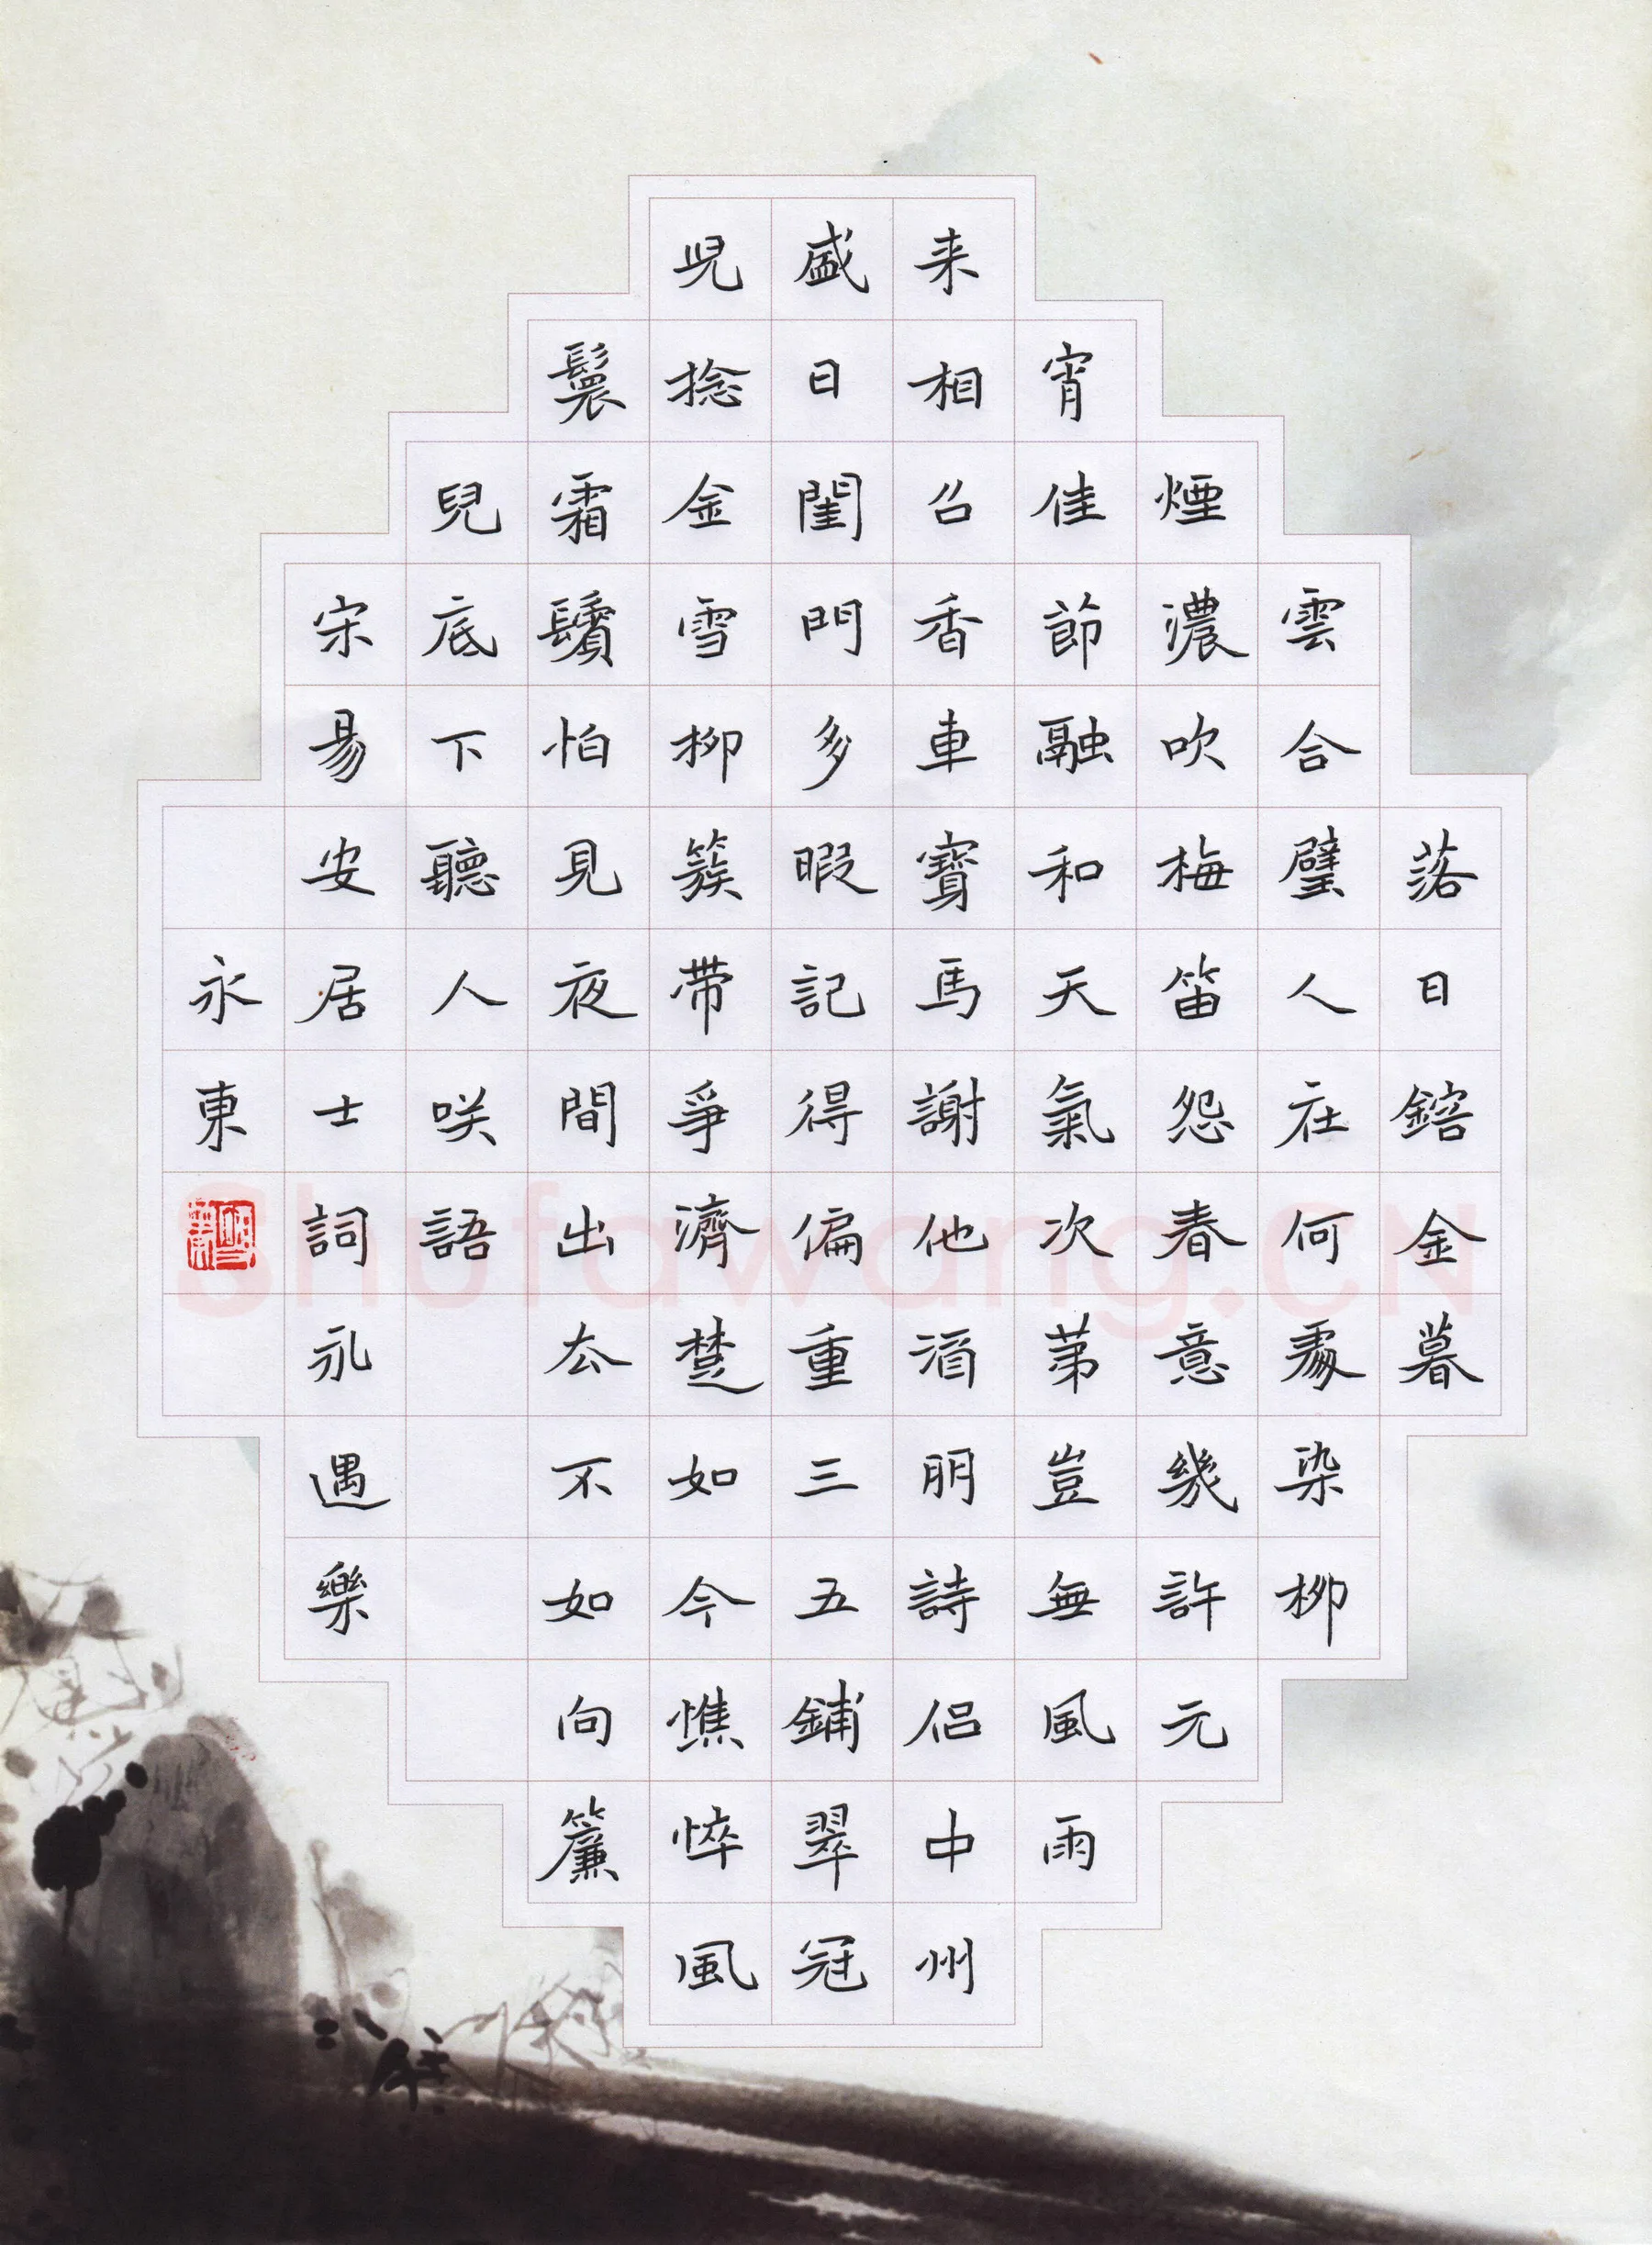 落日鎔金暮
雲合璧人在何處染柳
煙濃吹梅笛怨春意幾許元
宵佳節融和天氣次苐豈無風雨
来相召香車寶馬謝他酒朋詩侣中州
盛日閨門多暇記得偏重三五鋪翠冠
兒捻金雪柳簇带爭濟楚如今憔悴風
鬟霜鬢怕見夜間出去不如向簾
兒底下聽人咲語
宋易安居士詞永遇樂
永東
Shufawang.CN